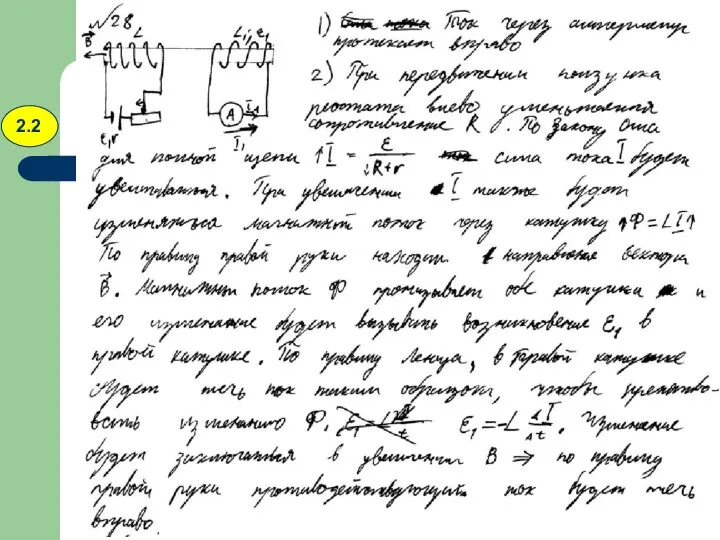 2.2
№28
B⃗ L L, i, ε₁
ε, r A I₁
I₁
1) Ток через амперметр
протекает вправо
2) При передвижении ползунка
реостата влево уменьшается
сопротивление R. По закону Ома
для полной цепи ↑I = ε / ↓R+r сила тока I будет
увеличиваться. При увеличении I также будет
изменяться магнитный поток через катушку ↑Ф = LI↑
По правилу правой руки находим направление вектора
B⃗. Магнитный поток Ф пронизывает обе катушки и
его изменение будет вызывать возникновение ε₁ в
правой катушке. По правилу Ленца, в правой катушке
будет течь ток таким образом, чтобы препятство-
вать изменению Ф. ε₁ = -L ΔI / Δt. Изменение
будет заключаться в увеличении B ⇒ по правилу
правой руки противодействующий ток будет течь
вправо.